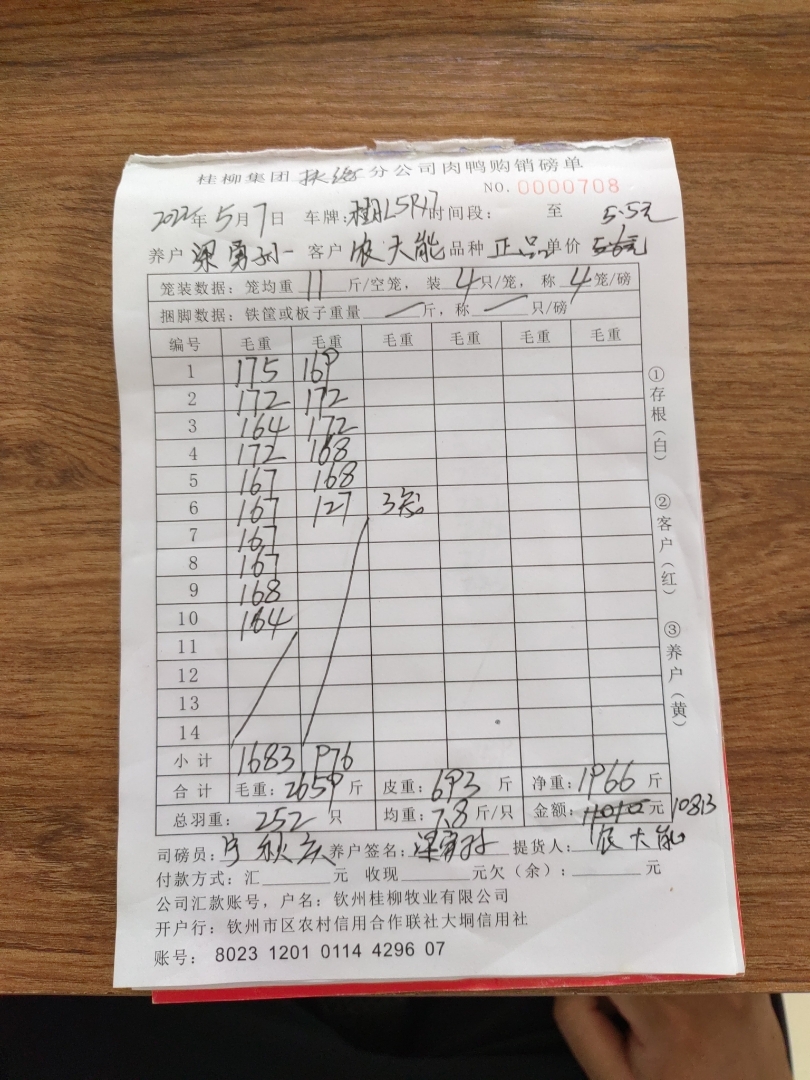 桂柳集团扶绥分公司肉鸭购销磅单
NO. 0000708
2022年5月7日 车牌: 时间段: 至 5.5元
养户 梁勇孙一 客户 农大能 品种 正品 单价 5.6元
笼装数据: 笼均重 11 斤/空笼, 装 4 只/笼, 称 4 笼/磅
捆脚数据: 铁筐或板子重量 一 斤, 称 一 只/磅
编号 毛重 毛重 毛重 毛重 毛重 毛重
1 175 169
2 172 172
3 164 172
4 172 168
5 167 168
6 167 127 3笼
7 167
8 167
9 168
10 164
11
12
13
14
小计 1683 976
合计 毛重: 2659 斤 皮重: 693 斤 净重: 1966 斤
总羽重: 252 只 均重: 7.8 斤/只 金额: 11010 元 10813
司磅员: 养户签名: 梁勇孙 提货人: 农大能
付款方式: 汇 元 收现 元欠(余): 元
公司汇款账号, 户名: 钦州桂柳牧业有限公司
开户行: 钦州市区农村信用合作联社大垌信用社
账号: 8023 1201 0114 4296 07
①存根(白)
②客户(红)
③养户(黄)